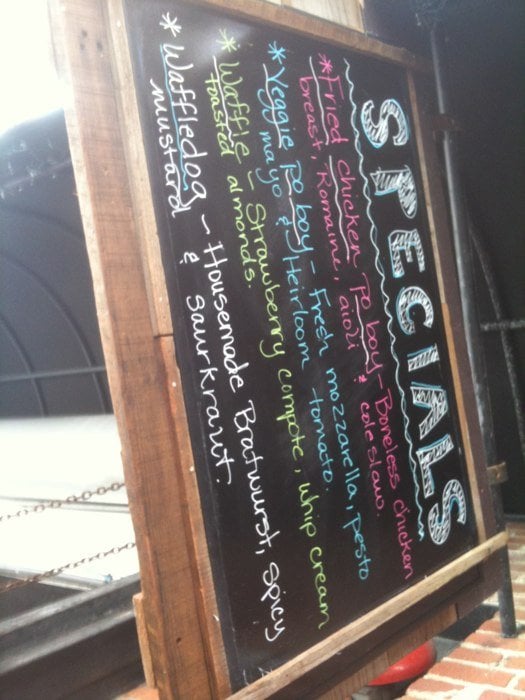 SPECIALS
*Fried chicken po boy - Boneless chicken
breast, Romaine, aioli & cole slaw.
*Veggie po boy - Fresh mozzarella, pesto
mayo & Heirloom tomato.
*Waffle - Strawberry compote, whip cream
toasted almonds.
*Waffledog - Housemade Bratwurst, spicy
mustard & saurkraut.